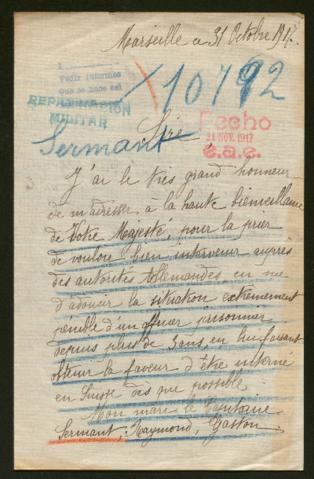 Marseille le 31 Octobre 1917.
1
Pedir informes
que se hace así
10792
REPATRIACIÓN
MILITAR
Fecho
21 NOV. 1917
e.a.e.
Sermant
Sire,
J'ai le très grand honneur
de m'adresser à la haute bienveillance
de Votre Majesté, pour la prier
de vouloir bien intervenir auprès
des autorités allemandes, en vue
d'adoucir la situation extrêmement
pénible d'un officier prisonnier
depuis plus de 3 ans, en lui faisant
obtenir la faveur d'être interné
en Suisse dès que possible
Mon mari le Capitaine
Sermant, Raymond, Gaston